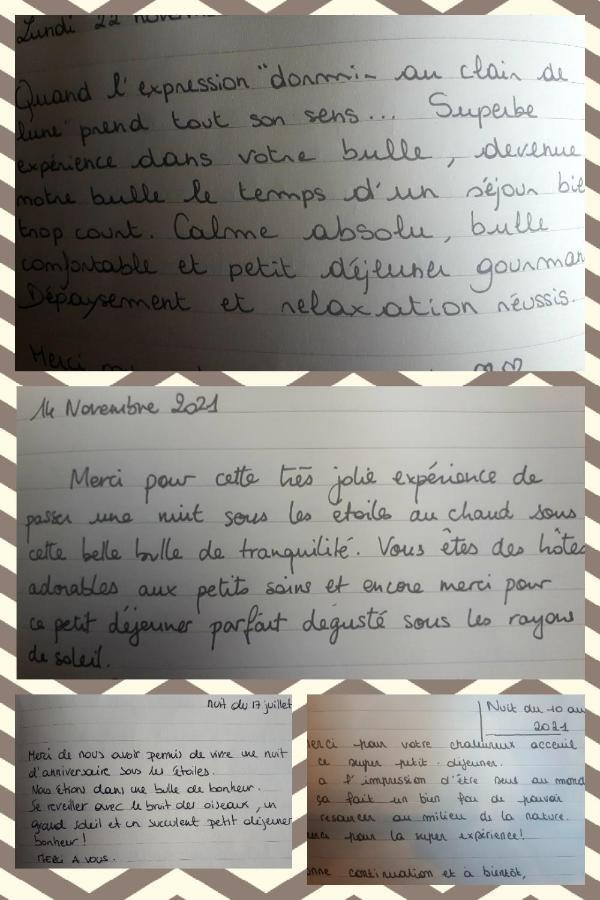 Lundi 22
Quand l'expression "dormir au clair de
lune" prend tout son sens... Superbe
expérience dans votre bulle, devenue
notre bulle le temps d'un séjour
trop court. Calme absolu, bulle
comfortable et petit déjeuner
Dépaysement et relaxation réussis.
Merci
14 Novembre 2021
Merci pour cette très jolie expérience de
passer une nuit sous les étoiles au chaud sous
cette belle bulle de tranquilité. Vous êtes des hôtes
adorables aux petits soins et encore merci pour
ce petit déjeuner parfait dégusté sous les rayons
de soleil.
nuit du 17 juillet
Merci de nous avoir permis de vivre une nuit
d'anniversaire sous les étoiles.
Nous étions dans une bulle de bonheur.
Se reveiller avec le bruit des oiseaux, un
grand soleil et un succulent petit déjeuner
bonheur!
MERCI A VOUS.
Nuit du 10 au
2021
pour votre chaleureux acceuil
ce super petit déjeuner.
a l'impression d'être seul au
ça fait un bien fou de pouvoir
au milieu de la nature.
pour la super expérience!
continuation et à bientôt,